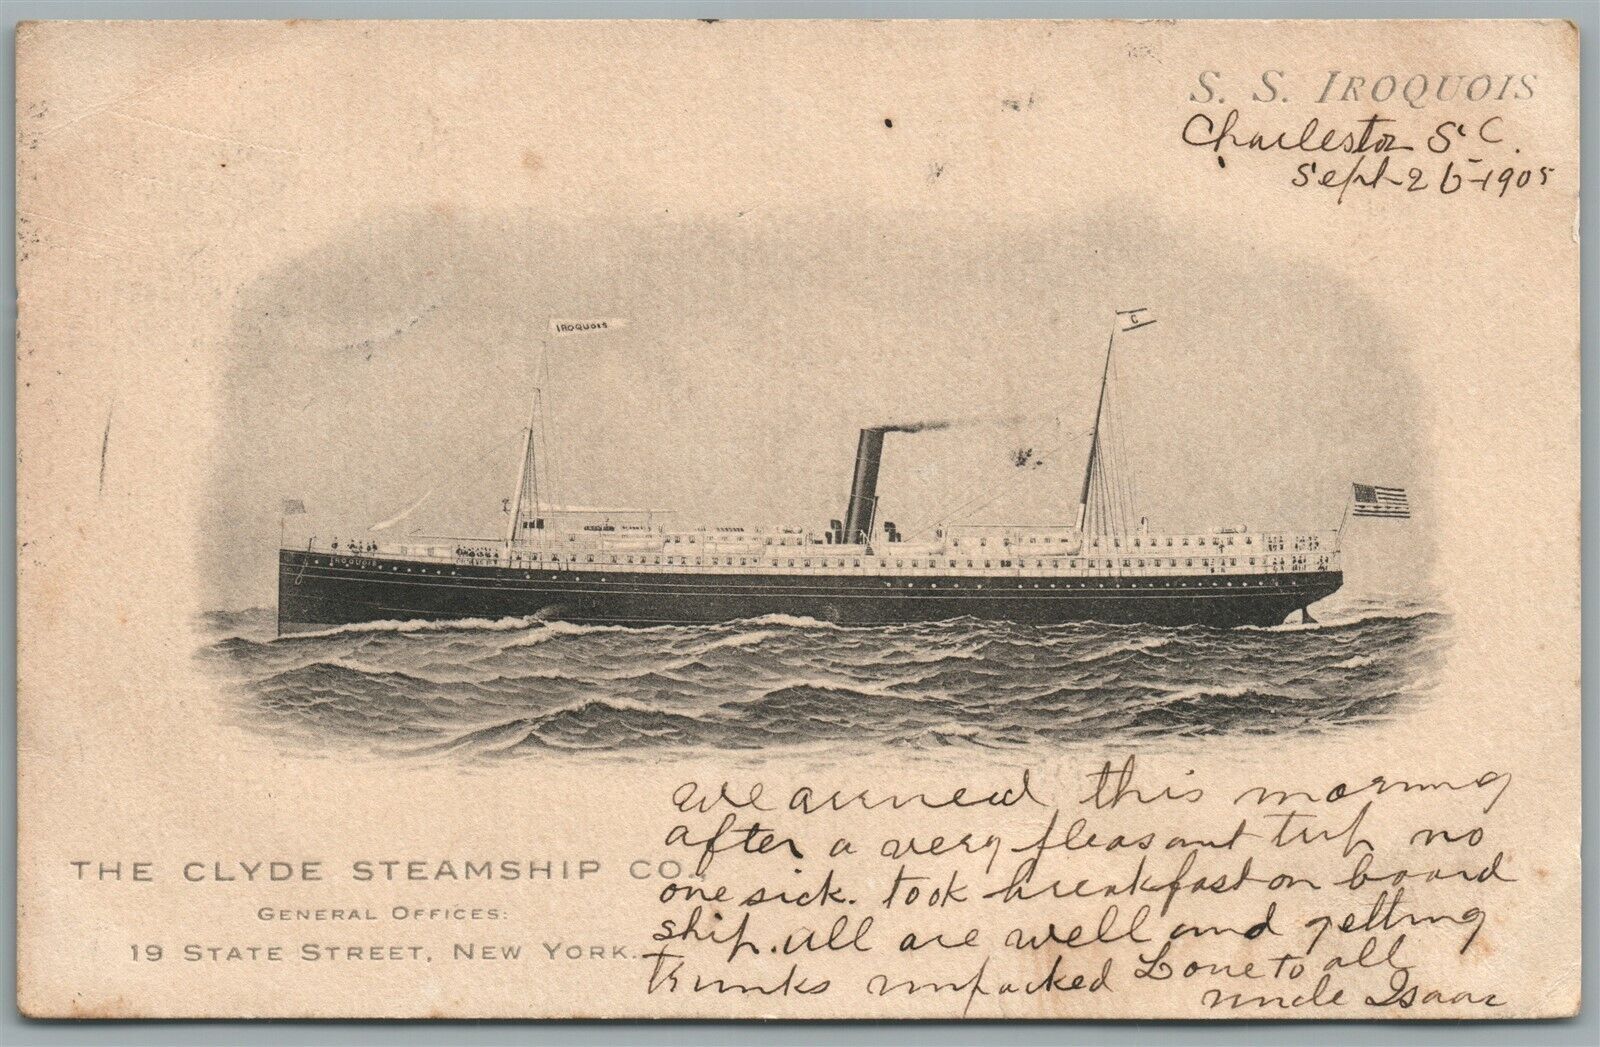 S. S. IROQUOIS
Charleston S C.
Sept-26-1905
IROQUOIS
C
IROQUOIS
we arrived this morning
after a very pleasant trip no
one sick. took breakfast on board
ship. all are well and getting
trunks unpacked Love to all
uncle Isaac
THE CLYDE STEAMSHIP CO.
GENERAL OFFICES:
19 STATE STREET, NEW YORK.